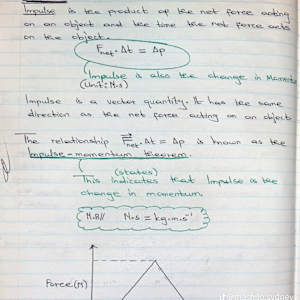 Impulse is the product of the net force acting
on an object and the time the net force acts
on the object.
Fnet · Δt = Δp
Impulse is also the change in Momentum
(Unit: N·s)
Impulse is a vector quantity. It has the same
direction as the net force acting on an object
The relationship Fnet · Δt = Δp is known as the
Impulse-momentum theorem.
(states)
This indicates that Impulse is the
change in momentum.
N.B// N·s = kg·m·s⁻¹
Force (N)